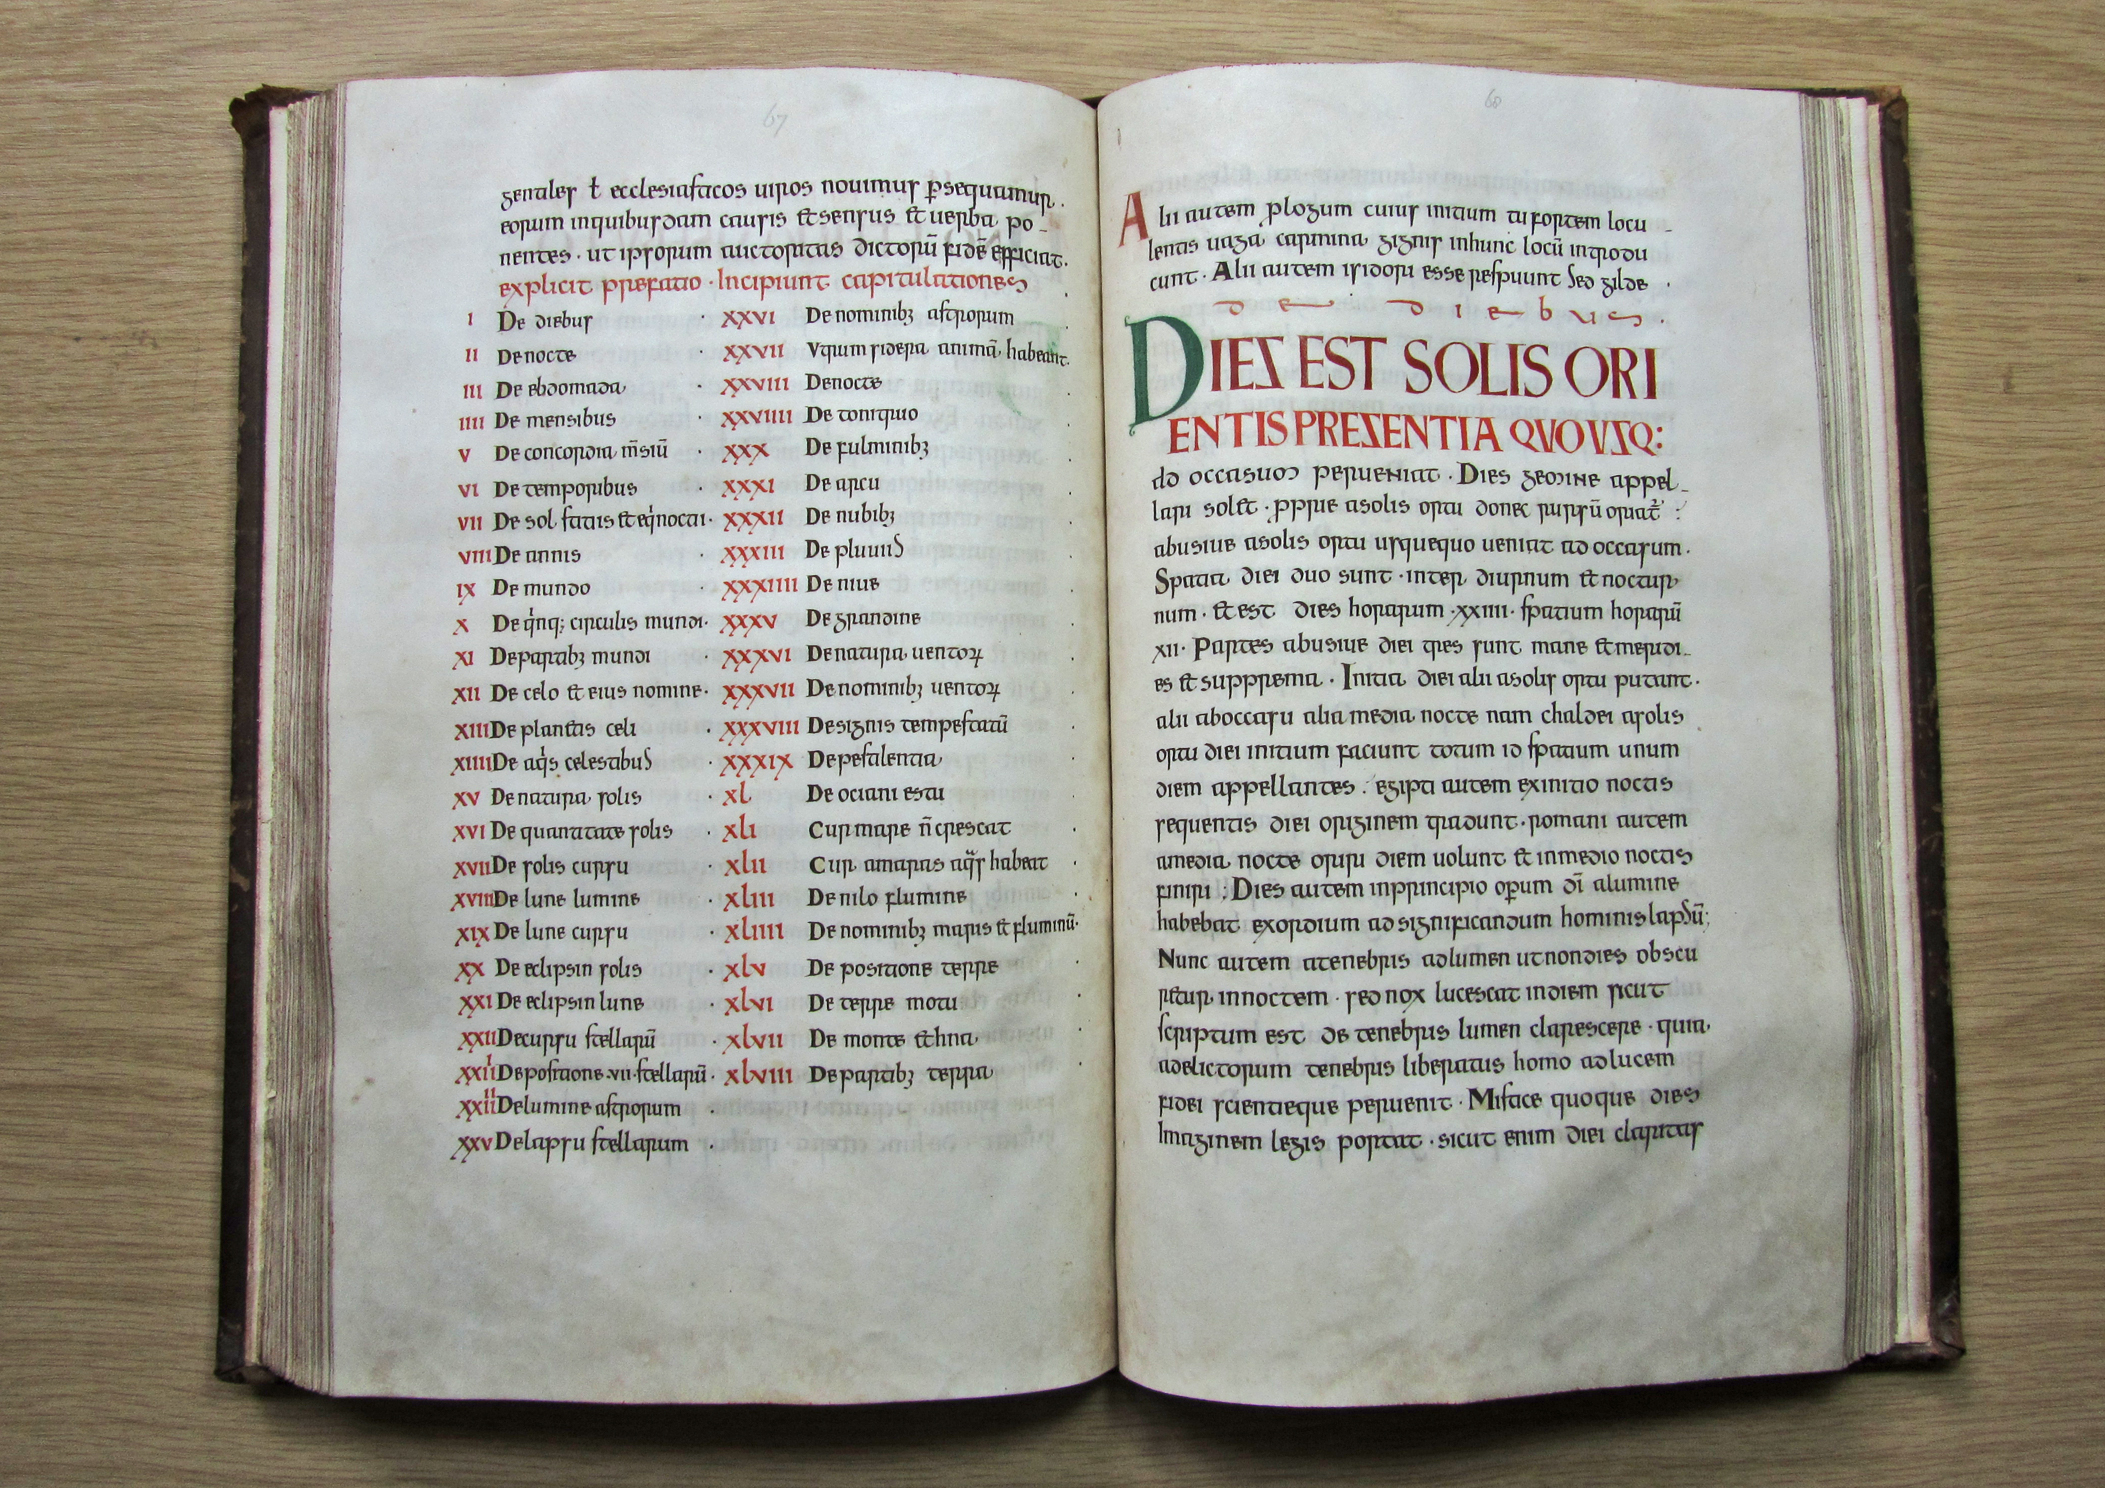 67
gentiles ł ecclesiasticos uiros nouimus p̱sequamur.
eorum inquibusdam causis &sensus & uerba po-
nentes · ut ipsorum auctoritas dictorū fidē efficiat.
explicit prefatio · Incipiunt capitulationes
I De diebus
II De nocte
III De ebdomada
IIII De mensibus
V De concordia m̄siū
VI De temporibus
VII De sol statis &eq̍noctii·
VIII De annis
IX De mundo
X De q̍nq; circulis mundi·
XI De partib; mundi
XII De celo & eius nomine·
XIII De plan&is celi
XIIII De aq̍s celestibus
XV De natura solis
XVI De quantitate solis
XVII De solis cursu
XVIII De lune lumine
XIX De lune cursu
XX De eclipsin solis
XXI De eclipsin lune
XXII De cursu stellarū
XXIII De positione·vii·stellarū·
XXIIII De lumine astrorum
XXV De lapsu stellarum
XXVI De nominib; astrorum
XXVII Vtrum sidera animā habeant.
XXVIII De nocte
XXVIIII De tonitruo
XXX De fulminib;
XXXI De arcu
XXXII De nubib;
XXXIII De pluuiis
XXXIIII De niue
XXXV De grandine
XXXVI De natura uentoꝝ
XXXVII De nominib; uentoꝝ
XXXVIII De signis tempestatū
XXXIX De pestilentia
XL De ociani estu
XLI Cur mare n̄ crescat
XLII Cur amaras aq̈s habeat
XLIII De nilo flumine
XLIIII De nominib; maris & fluminū·
XLV De positione terre
XLVI De terre motu
XLVII De monte &hna
XLVIII De partib; terra
68
Alii autem ꝓlogum cuius initium tu fortem locu-
lentis uaga carmina gignis inhunc locū introdu
cunt · Alii autem isidori esse respuunt Sed gilde
de diebus.
DIES EST SOLIS ORI
ENTIS PRESENTIA QVOVSQ:
ad occasum perueniat · Dies gemine appel-
lari sol& · ꝓprie asolis ortu donec rursū oriat᷑ :
abusiue asolis ortu usquequo ueniat ad occasum.
Spatia diei duo sunt · inter diurnum & noctur
num · & est dies horarum ·xxiiii· spatium horarū
xii· Partes abusiue diei tres sunt mane &meridi-
es & supprema · Initia diei alii asolis ortu putant·
alii aboccasu alia media nocte nam chaldei asolis
ortu diei initium faciunt totum id spatium unum
diem appellantes : egipti autem exinitio noctis
sequentis diei originem tradunt · romani autem
amedia nocte oriri diem uolunt & inmedio noctis
finiri : Dies autem inprincipio oꝑum dī alumine
habebat exordium adsignificandum hominis lapsū;
Nunc autem atenebris adlumen utnondies obscu
r&ur innoctem · sed nox lucescat indiem sicut
scriptum est de tenebris lumen clarescere · quia
adelictorum tenebris liberatus homo adlucem
fidei scientieque peruenit · Mistice quoque dies
Imaginem legis portat · sicut enim diei claritas